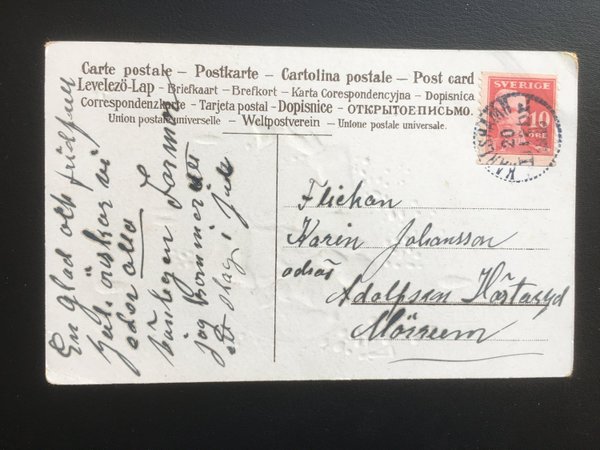 Carte postale – Postkarte – Cartolina postale – Post card
Levelezö-Lap – Briefkaart – Brefkort – Karta Corespondencyjna – Dopisnica
Correspondenzkarte – Tarjeta postal – Dopisnice – ОТКРЫТОЕПИСЬМО.
Union postale universelle – Weltpostverein – Unione postale universale.
SVERIGE
10
ÖRE
KARLSHAMN
20
En glad och fridfull
jul önskar vi
eder alla
jag kommer
ett slag i jul
Flickan
Karin Johansson
adrss
Adolfsson
Mörrum